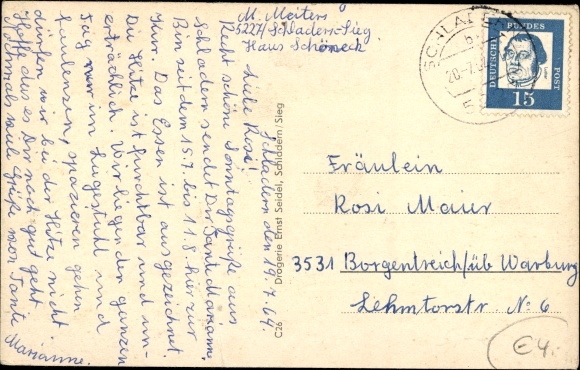 M. Meiters
5227/Schladern-Sieg
Haus Schöneck
Schladern den 19.7.64.
Liebe Rosi!
Recht schöne Sonntagsgrüße aus
Schladern sendet Dir Tante Marianne.
Bin seit dem 15.7. bis 11.8. hier zur
Kur. Das Essen ist ausgezeichnet.
Die Hitze ist furchtbar und un-
erträglich. Wir liegen den ganzen
Tag nur im Liegestuhl und
faulenzen, spazieren gehen
dürfen wir bei der Hitze nicht
Hoffe das es Dir noch gut geht.
Nochmals viele Grüße von Tante
Marianne.
C26 Drogerie Ernst Seidel, Schladern/Sieg
SCHLADERN
20.-7.
DEUTSCHE BUNDESPOST
15
Fräulein
Rosi Maier
3531 Borgentreich/üb Warburg
Lehmtorstr. No 6
€4.-